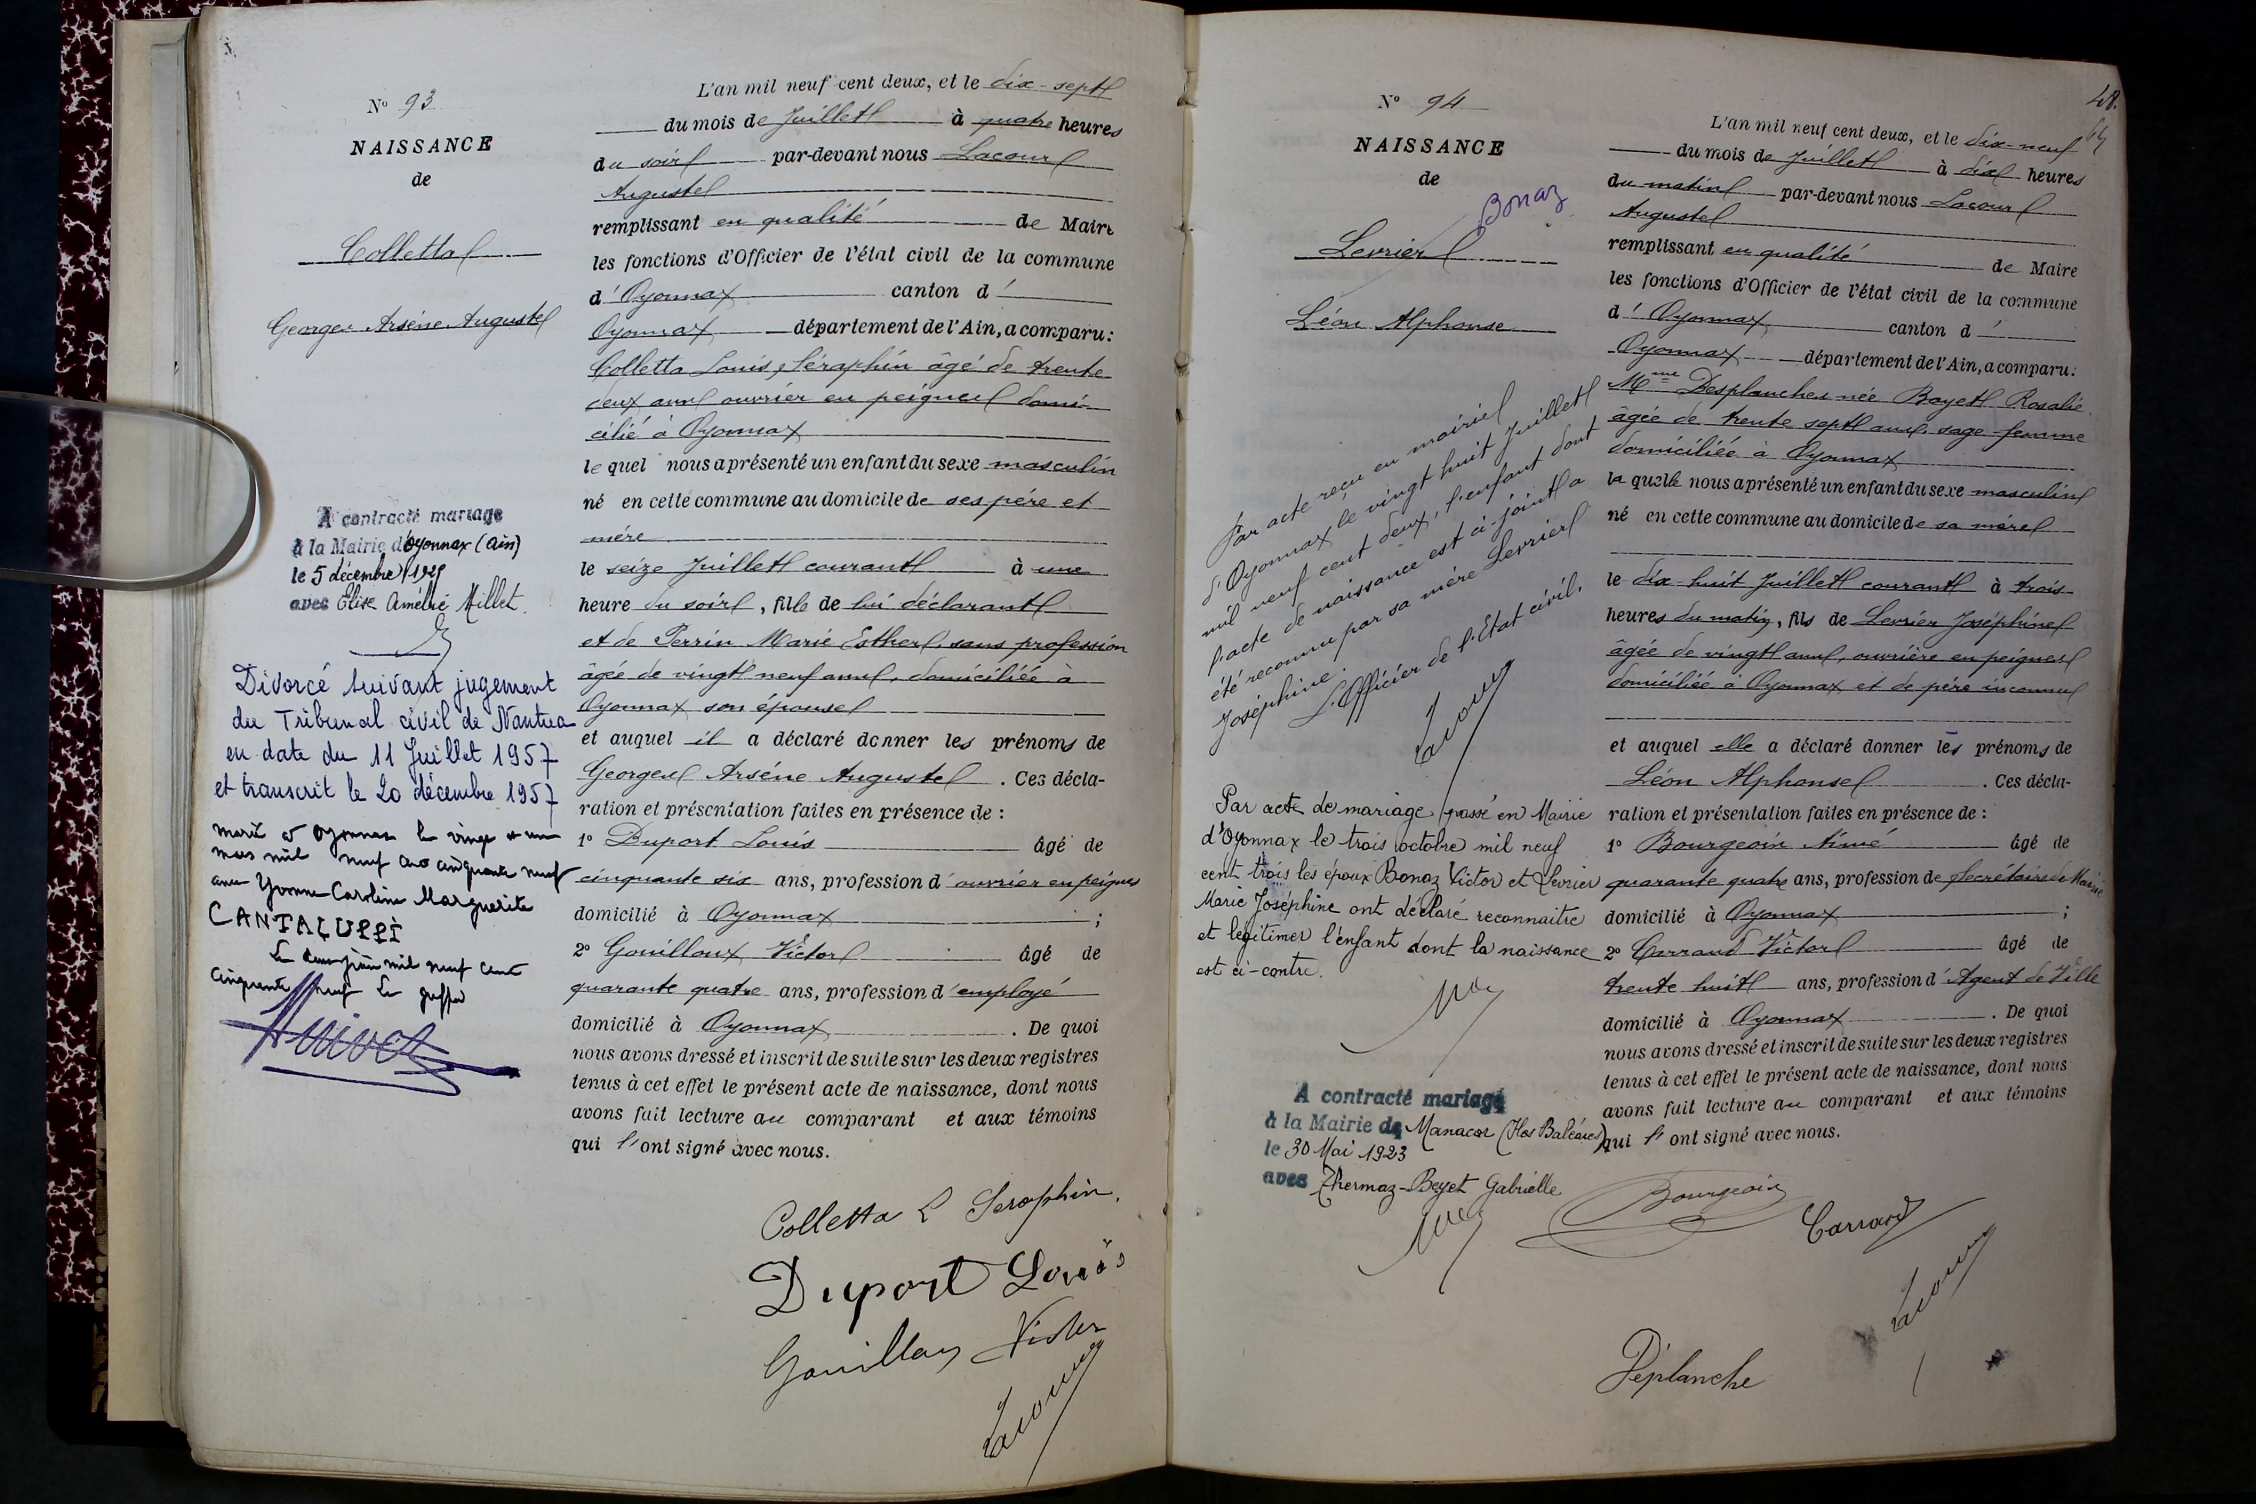 N° 93
NAISSANCE
de
Colletta
Georges Arsène Auguste
A contracté mariage
à la Mairie d'Oyonnax (Ain)
le 5 décembre 1929
avec Elise Amélie Millet.
Divorcé suivant jugement
du Tribunal civil de Nantua
en date du 11 Juillet 1957
et transcrit le 20 décembre 1957
marié à Oyonnax le vingt et un
mars mil neuf cent cinquante neuf
avec Yvonne Caroline Marguerite
CANTALUPPI
Le deux juin mil neuf cent
cinquante neuf Le greffier
L'an mil neuf cent deux, et le dix-sept
du mois de Juillet à quatre heures
du soir par-devant nous Lacour
Auguste
remplissant en qualité de Maire
les fonctions d'Officier de l'état civil de la commune
d'Oyonnax canton d'
Oyonnax département de l'Ain, a comparu :
Colletta Louis, Séraphin âgé de trente
deux ans ouvrier en peignes domi-
cilié à Oyonnax
lequel nous a présenté un enfant du sexe masculin
né en cette commune au domicile de ses père et
mère
le seize Juillet courant à une
heure du soir, fils de lui déclarant
et de Perrin Marie Esther, sans profession
âgée de vingt neuf ans, domiciliée à
Oyonnax son épouse
et auquel il a déclaré donner les prénoms de
Georges Arsène Auguste. Ces décla-
ration et présentation faites en présence de :
1° Duport Louis âgé de
cinquante six ans, profession d'ouvrier en peignes
domicilié à Oyonnax ;
2° Gouilloux Victor âgé de
quarante quatre ans, profession d'employé
domicilié à Oyonnax. De quoi
nous avons dressé et inscrit de suite sur les deux registres
tenus à cet effet le présent acte de naissance, dont nous
avons fait lecture au comparant et aux témoins
qui l'ont signé avec nous.
Colletta L Seraphin.
Duport Louis
Gouilloux Victor
Lacour
48.
N° 94
NAISSANCE
de
Bonaz
Levrier
Léon Alphonse
Par acte reçu en mairie
d'Oyonnax le vingt huit Juillet
mil neuf cent deux, l'enfant dont
l'acte de naissance est ci-joint a
été reconnu par sa mère Levrier
Joséphine.
L'Officier de l'Etat civil.
Lacour
Par acte de mariage passé en Mairie
d'Oyonnax le trois octobre mil neuf
cent trois les époux Bonaz Victor et Levrier
Marie Joséphine ont déclaré reconnaitre
et legitimer l'enfant dont la naissance
est ci-contre.
A contracté mariage
à la Mairie de Manacor (Iles Baléares)
le 30 Mai 1923
avec Thermaz-Beyet Gabrielle
L'an mil neuf cent deux, et le dix-neuf
du mois de Juillet à dix heures
du matin par-devant nous Lacour
Auguste
remplissant en qualité de Maire
les fonctions d'Officier de l'état civil de la commune
d'Oyonnax canton d'
Oyonnax département de l'Ain, a comparu :
Mme Desplanches née Bayet Rosalie
âgée de trente sept ans, sage-femme
domiciliée à Oyonnax
laquelle nous a présenté un enfant du sexe masculin
né en cette commune au domicile de sa mère
le dix-huit Juillet courant à trois
heures du matin, fils de Levrier Joséphine
âgée de vingt ans, ouvrière en peignes
domiciliée à Oyonnax et de père inconnu
et auquel elle a déclaré donner les prénoms de
Léon Alphonse. Ces décla-
ration et présentation faites en présence de :
1° Bourgeoin Aimé âgé de
quarante quatre ans, profession de Secrétaire de Mairie
domicilié à Oyonnax ;
2° Carraud Victor âgé de
trente huit ans, profession d'Agent de Ville
domicilié à Oyonnax. De quoi
nous avons dressé et inscrit de suite sur les deux registres
tenus à cet effet le présent acte de naissance, dont nous
avons fait lecture au comparant et aux témoins
qui l'ont signé avec nous.
Bourgeoin
Carraud
Lacour
Déplanche